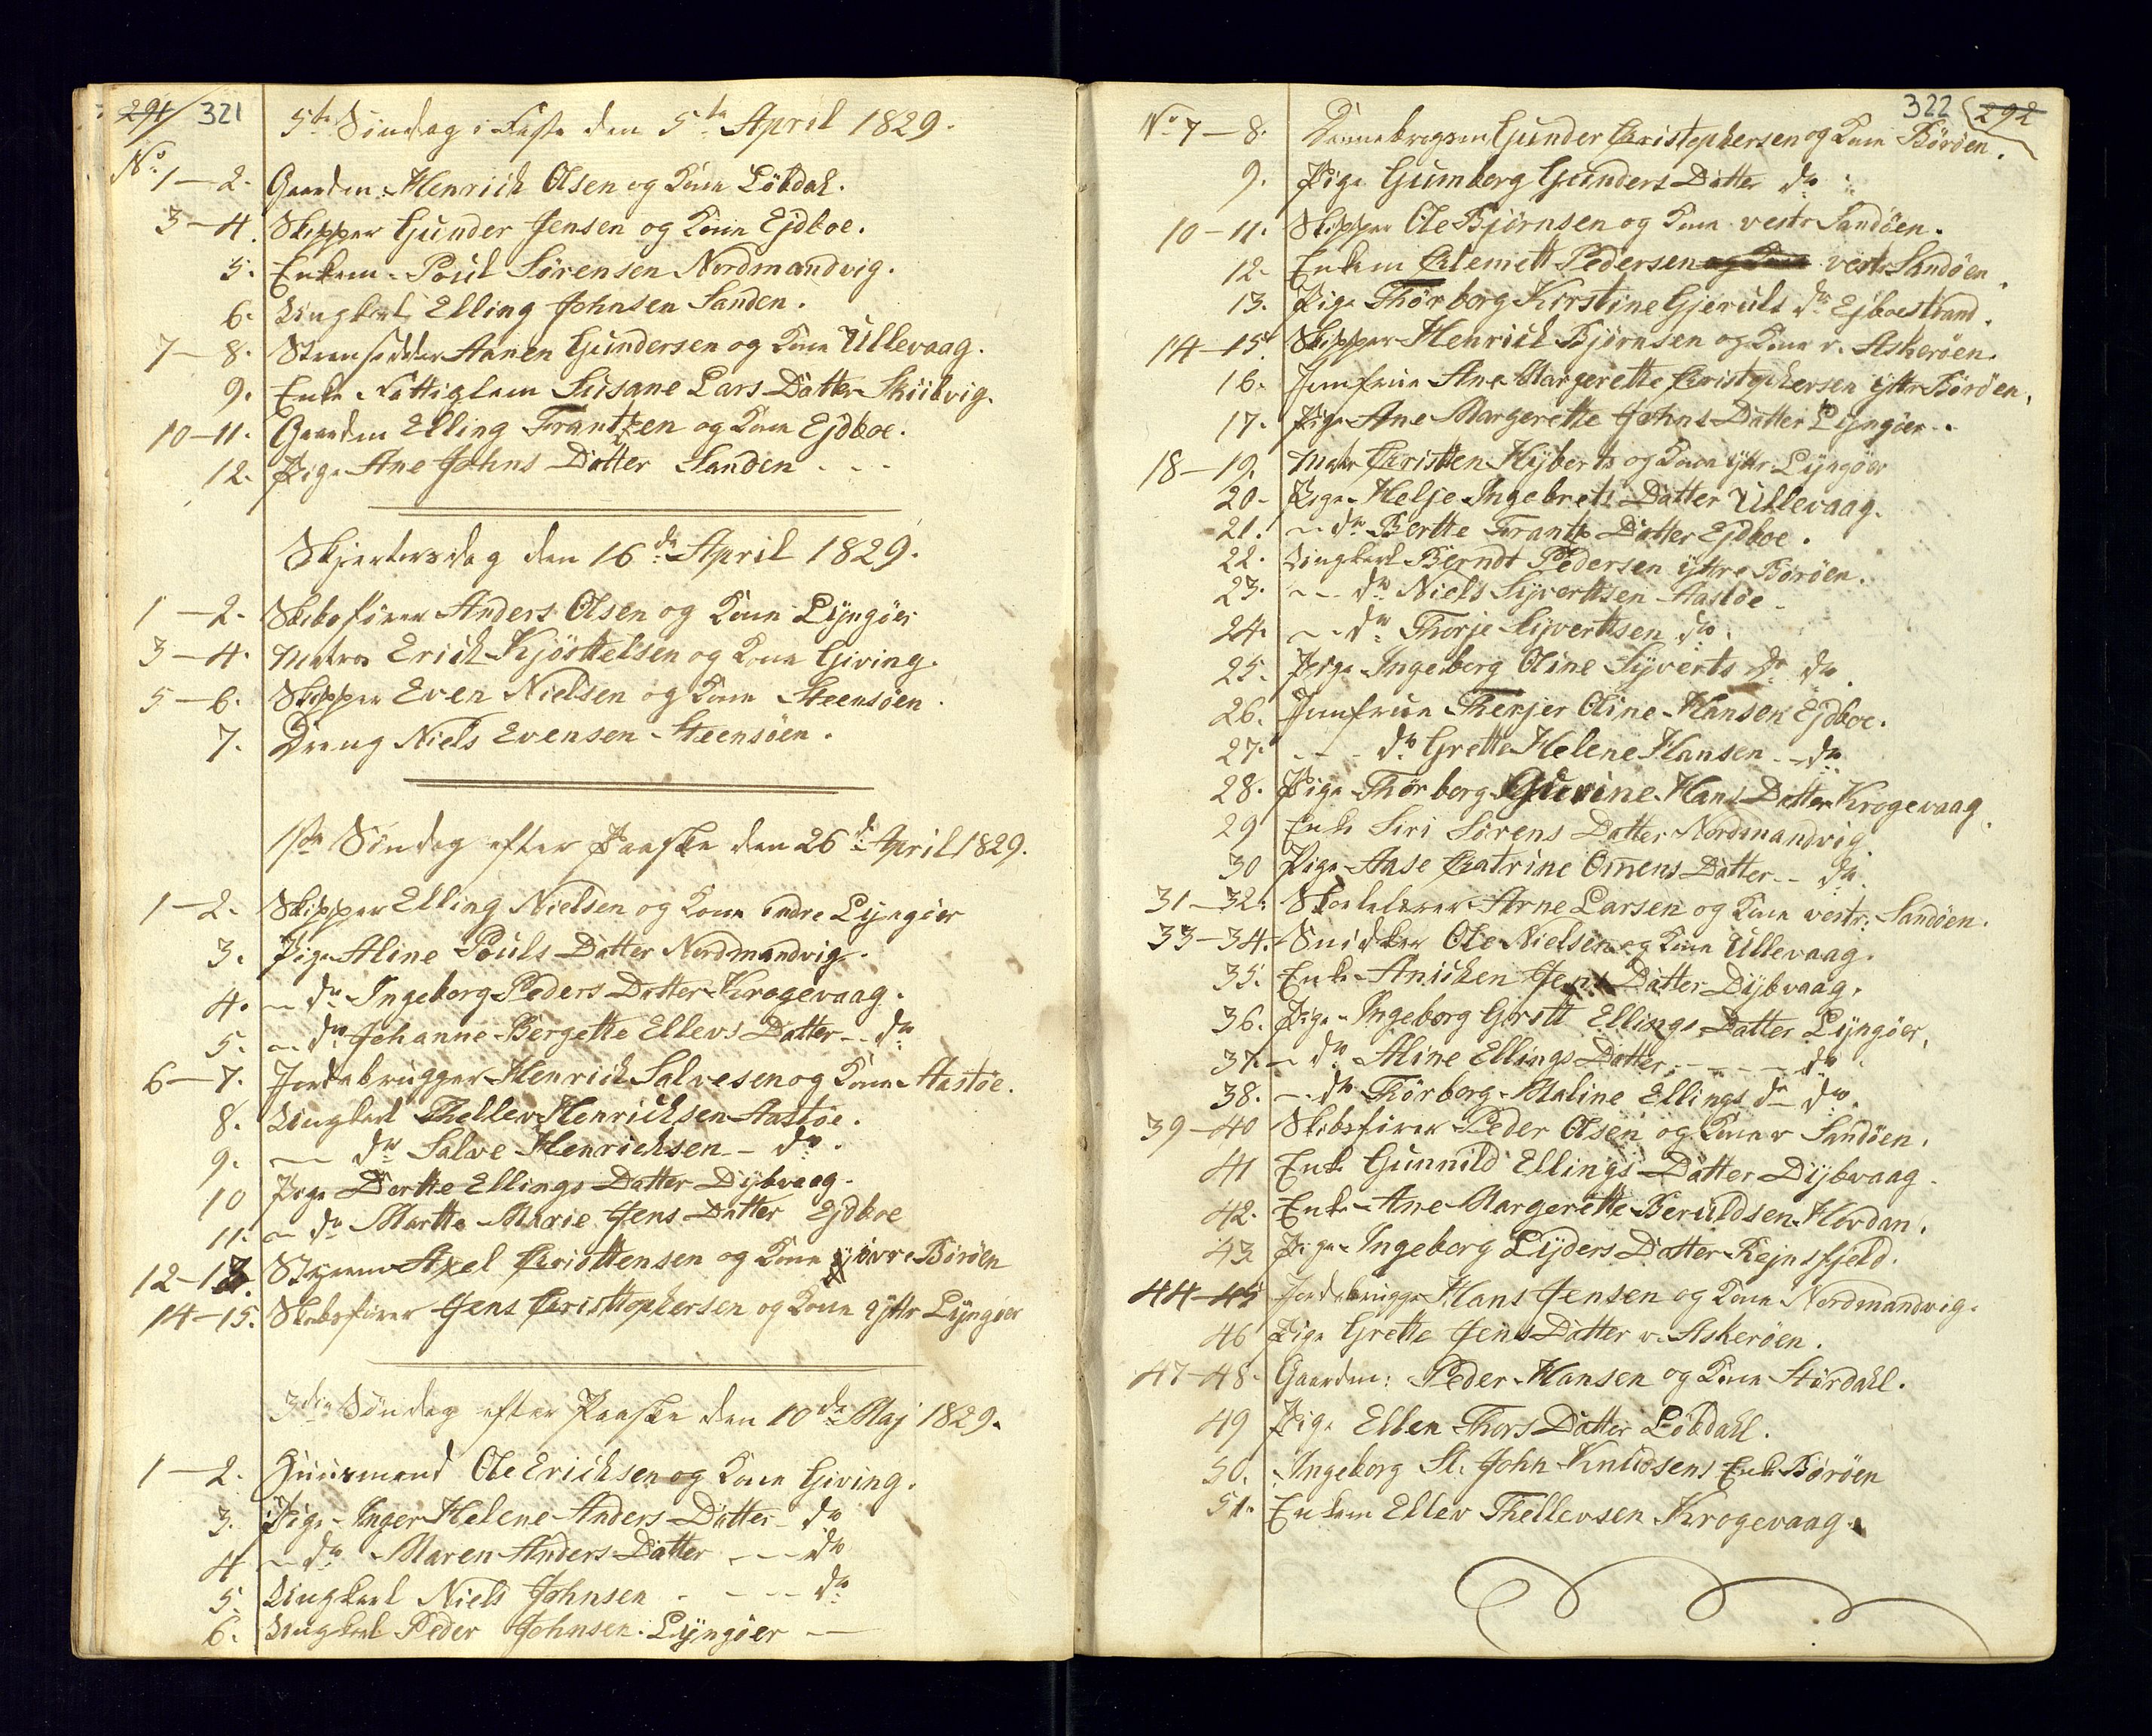 291/ 321
5te Søndag i Faste den 5te April 1829.
No
1-2. Gaardm: Henrich Olsen og Kone Løbdal.
3-4. Skipper Gunder Jensen og Kone Ejdboe.
5. Enkem. Poul Sørensen Nordmandvig.
6. Ungkarl Elling Johnsen Sanden.
7-8. Aanen Gundersen og Kone Ullevaag.
9. Enke Fattiglem Susane Lars Datter
10-11. Gaardm Elling Frantzen og Kone Ejdboe.
12. Pige Ane Johns Datter Sanden - - -
Skjertorsdag den 16de April 1829.
1-2. Skibsfører Anders Olsen og Kone Lyngøer
3-4. Matros Erich Kjösttelsen og Kone Giving.
5-6. Skipper Even Nielsen og Kone Steensöen.
7. Dreng Niels Evensen Steensöen.
1ste Søndag efter Paaske den 26de April 1829.
1-2. Skipper Elling Nielsen og Kone indre Lyngöer
3. Pige Aline Pouls Datter Nordmandvig.
4. - do Ingeborg Peders Datter Krogevaag.
5. - do Johanne Bergette Ellevs Datter -- do
6-7. Jordebrugger Henrich Salvesen og Kone Aastöe.
8. Ungkarl Thellev Henrichsen Aastöe.
9. -- do Salve Henrichsen - do.
10 Pige Dortte Ellings Datter Dybvaag.
11. - do Martte Marie Jens Datter Ejdboe
12-13. Axel Christtensen og Kone Böröen
14-15. Skibsfører Jens Christtophersen og Kone yttr Lyngöer
3die Søndag efter Paaske den 10de Maj 1829.
1-2. Huusmand Ole Erichsen og Kone Giving.
3. Pige Inger Helene Anders Datter - do
4 - do Maren Anders Datter --- do
5. Ungkarl Niels Johnsen - --- do
6. Ungkarl Peder Johnsen Lyngöer —
322 292
No 7-8. Dannebrogsm Gunder Christophersen og Kone Böröen.
9. Pige Gumborg Gunders Datter do
10-11. Skipper Ole Bjørnsen og Kone vestr Sandöen.
12. Enkem Clemett Pedersen og Kone vestr Sandöen.
13. Pige Thørborg Kirstine Gjeruls dr Ejboestrand.
14-15. Skipper Henrich Bjørnsen og Kone v. Askeröen.
16. Jomfrue Ane Margerette Christophersen yttr Böröen.
17. Pige Ane Margerette Johns Datter Lyngöer.
18-19. Matr Christten Hyberts og Kone yttr Lyngöer
20. Pige Helje Ingebrets Datter Ullevaag.
21. - do Bertte Frantz Datter Ejdboe.
22. Ungkarl Berndt Pedersen yttre Böröen.
23. -- do Niels Syvertsen Aastöe
24. -- do Thorje Syvertsen do.
25. Pige Ingeborg Oline Syverts dr do.
26. Jomfrue Therjer Oline Hansen Ejdboe.
27. - - - do Grette Helene Hansen -- do
28. Pige Thörborg Gurine Hans Datter Krogevaag.
29 Enke Siri Sørens Datter Nordmandvig
30 Pige Aase Catrine Omens Datter -- do
31-32. Skolelærer Arne Larsen og Kone vestr. Sandöen.
33-34. Snidker Ole Nielsen og Kone Ullevaag.
35. Enke Anicken Jens Datter Dybvaag.
36. Pige Ingeborg Grett Ellings Datter Lyngöer.
37. - do Aline Ellings Datter - - - - do
38. - do Thörborg Maline Ellings dr do.
39-40 Skibsfører Peder Olsen og Kone v Sandöen.
41 Enke Gunnild Ellings Datter Dybvaag.
42. Enke Ane Margerette Beruldsen Hovdan.
43 Pige Ingeborg Lyders Datter Rejnsfjeld.
44-45 Jordebrugger Hans Jensen og Kone Nordmandvig.
46 Pige Grette Jens Datter v. Askeröen.
47-48. Gaardm: Peder Hansen og Kone Stördahl.
49 Pige Ellen Thors Datter Löbdahl.
50. Ingeborg Sl. John Knudsens Enke Böröen
51. Enkem Ellev Thellevsen Krogevaag.